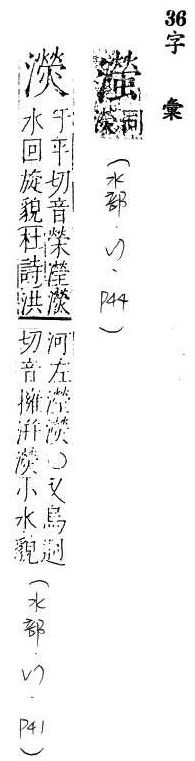 36
字彙
灐同濙
(水部．．P44)
濙
于平切音榮瀅濙
水回旋貌杜詩洪
河左瀅濙○又烏迥
切音汫濙小水貌
(水部．．P41)